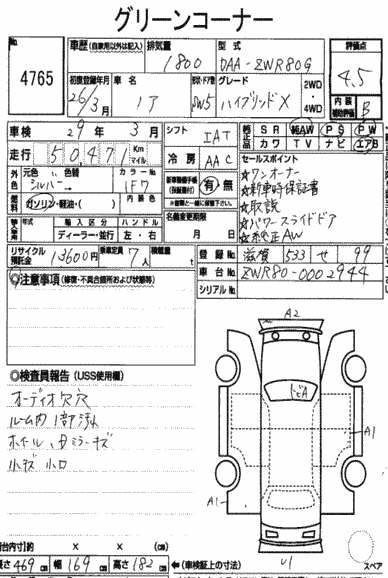 グリーンコーナー
No.
4765
車歴 (自家用以外は記入)
排気量
1800
型式
DAA-ZWR80G
評価点
4.5
初度登録年月
26/3月
車名
ノア
ドア・形状
5W
グレード
ハイブリッドX
2WD
・
4WD
内装
補助評価
B
車検 29年 3月
シフト
IAT
SR 純AW PS PW
カワ TV ナビ エアB
走行 50,471 Km
マイル
冷房
AAC
セールスポイント
☆ワンオーナー
☆新車時保証書
☆取説
☆パワースライドドア
☆純正AW
元色 色替
シルバー
カラーNo
1F7
燃料
ガソリン・軽油・( )
内装色
新車整備手帳
(保証書付)
有・無
年式 輸入区分 ハンドル
ディーラー・並行 左・右
名義変更期限
月 日
リサイクル
預託金
13600円
乗車定員
7人
積載量
t
登録No 滋賀 533 せ 99
車台No ZWR80-0002944
シリアルNo
◎注意事項 (修復・不具合箇所および状態等)
◎検査員報告 (USS使用欄)
オーディオ欠穴
ルーム内1部汚れ
小キズ 小凹
A2
トビA
A1
A1
U1
スペア
台内寸]約 × × (cm)
長さ 469 cm 幅 169 cm 高さ 182 cm
←(車検証上の寸法)